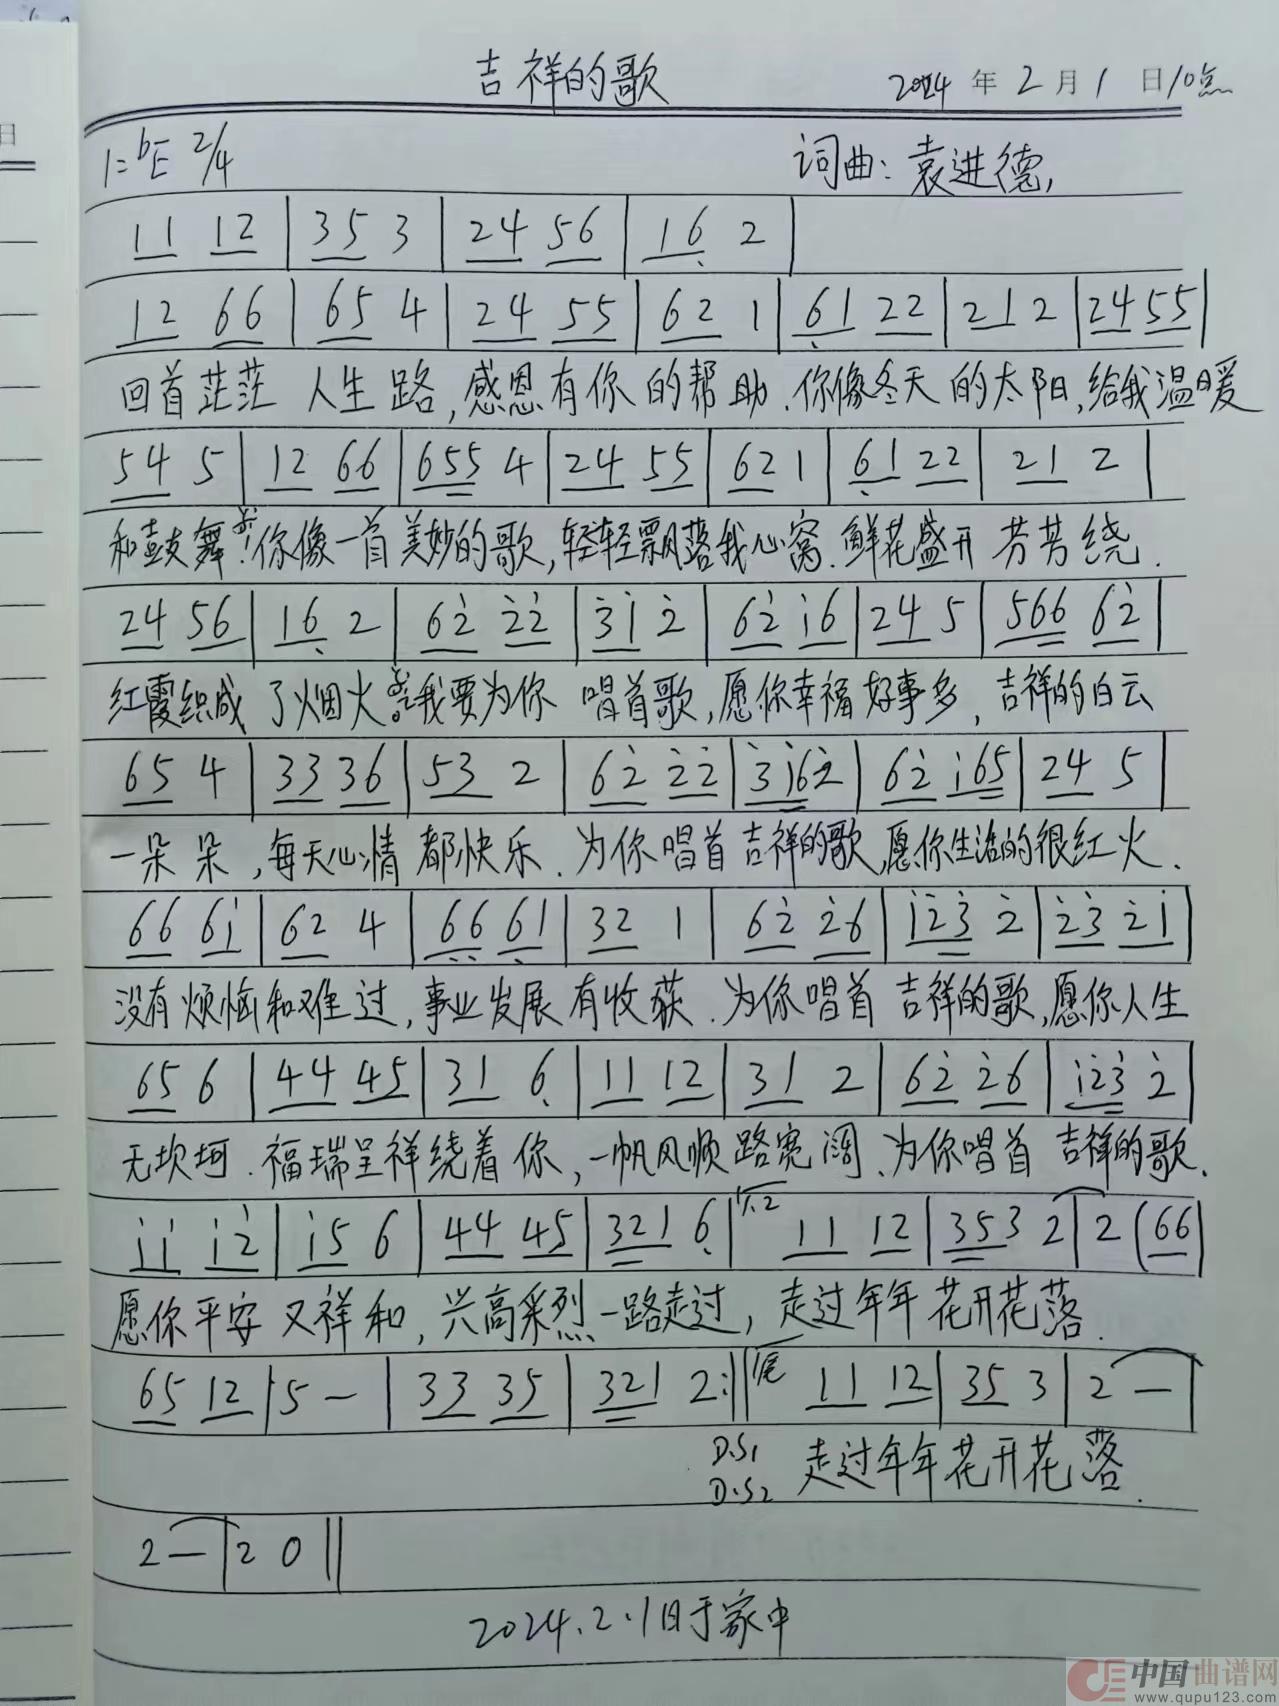 吉祥的歌 2024年2月1日10点
1=bE 2/4 词曲：袁进德
11 12 | 35 3 | 24 56 | 16 2 |
12 66 | 65 4 | 24 55 | 62 1 | 61 22 | 21 2 | 24 55 |
回首茫茫 人生路,感恩有你的帮助.你像冬天的太阳,给我温暖
54 5 | 12 66 | 655 4 | 24 55 | 62 1 | 61 22 | 21 2 |
和鼓舞!你像一首美妙的歌,轻轻飘落我心窝.鲜花盛开芬芳绕.
24 56 | 16 2 | 62̇ 2̇2̇ | 3̇1̇ 2̇ | 62̇ 1̇6 | 24 5 | 566 62̇ |
红霞织成了烟火 我要为你唱首歌,愿你幸福好事多,吉祥的白云
65 4 | 33 36 | 53 2 | 62̇ 2̇2̇ | 3̇1̇62̇ | 62̇ 1̇65 | 24 5 |
一朵朵,每天心情都快乐.为你唱首吉祥的歌,愿你生活的很红火.
66 61̇ | 62 4 | 66 61 | 32 1 | 62̇ 2̇6 | 1̇2̇3̇ 2̇ | 2̇3̇ 2̇1̇ |
没有烦恼和难过,事业发展有收获.为你唱首吉祥的歌,愿你人生
65 6 | 44 45 | 31 6 | 11 12 | 31 2 | 62̇ 2̇6 | 1̇2̇3̇ 2̇ |
无坎坷.福瑞呈祥绕着你,一帆风顺路宽阔.为你唱首吉祥的歌.
1̇1̇ 1̇2̇ | 1̇5 6 | 44 45 | 321 6 | 1.2 11 12 | 353 2 | 2 (66 |
愿你平安又祥和,兴高采烈一路走过,走过年年花开花落.
65 12 | 5 — | 33 35 | 321 2 :|| 尾 11 12 | 35 3 | 2 — |
D.S1 走过年年花开花落.
D.S2
2 — | 2 0 ||
2024.2.1日于家中
中国曲谱网
www.qupu123.com